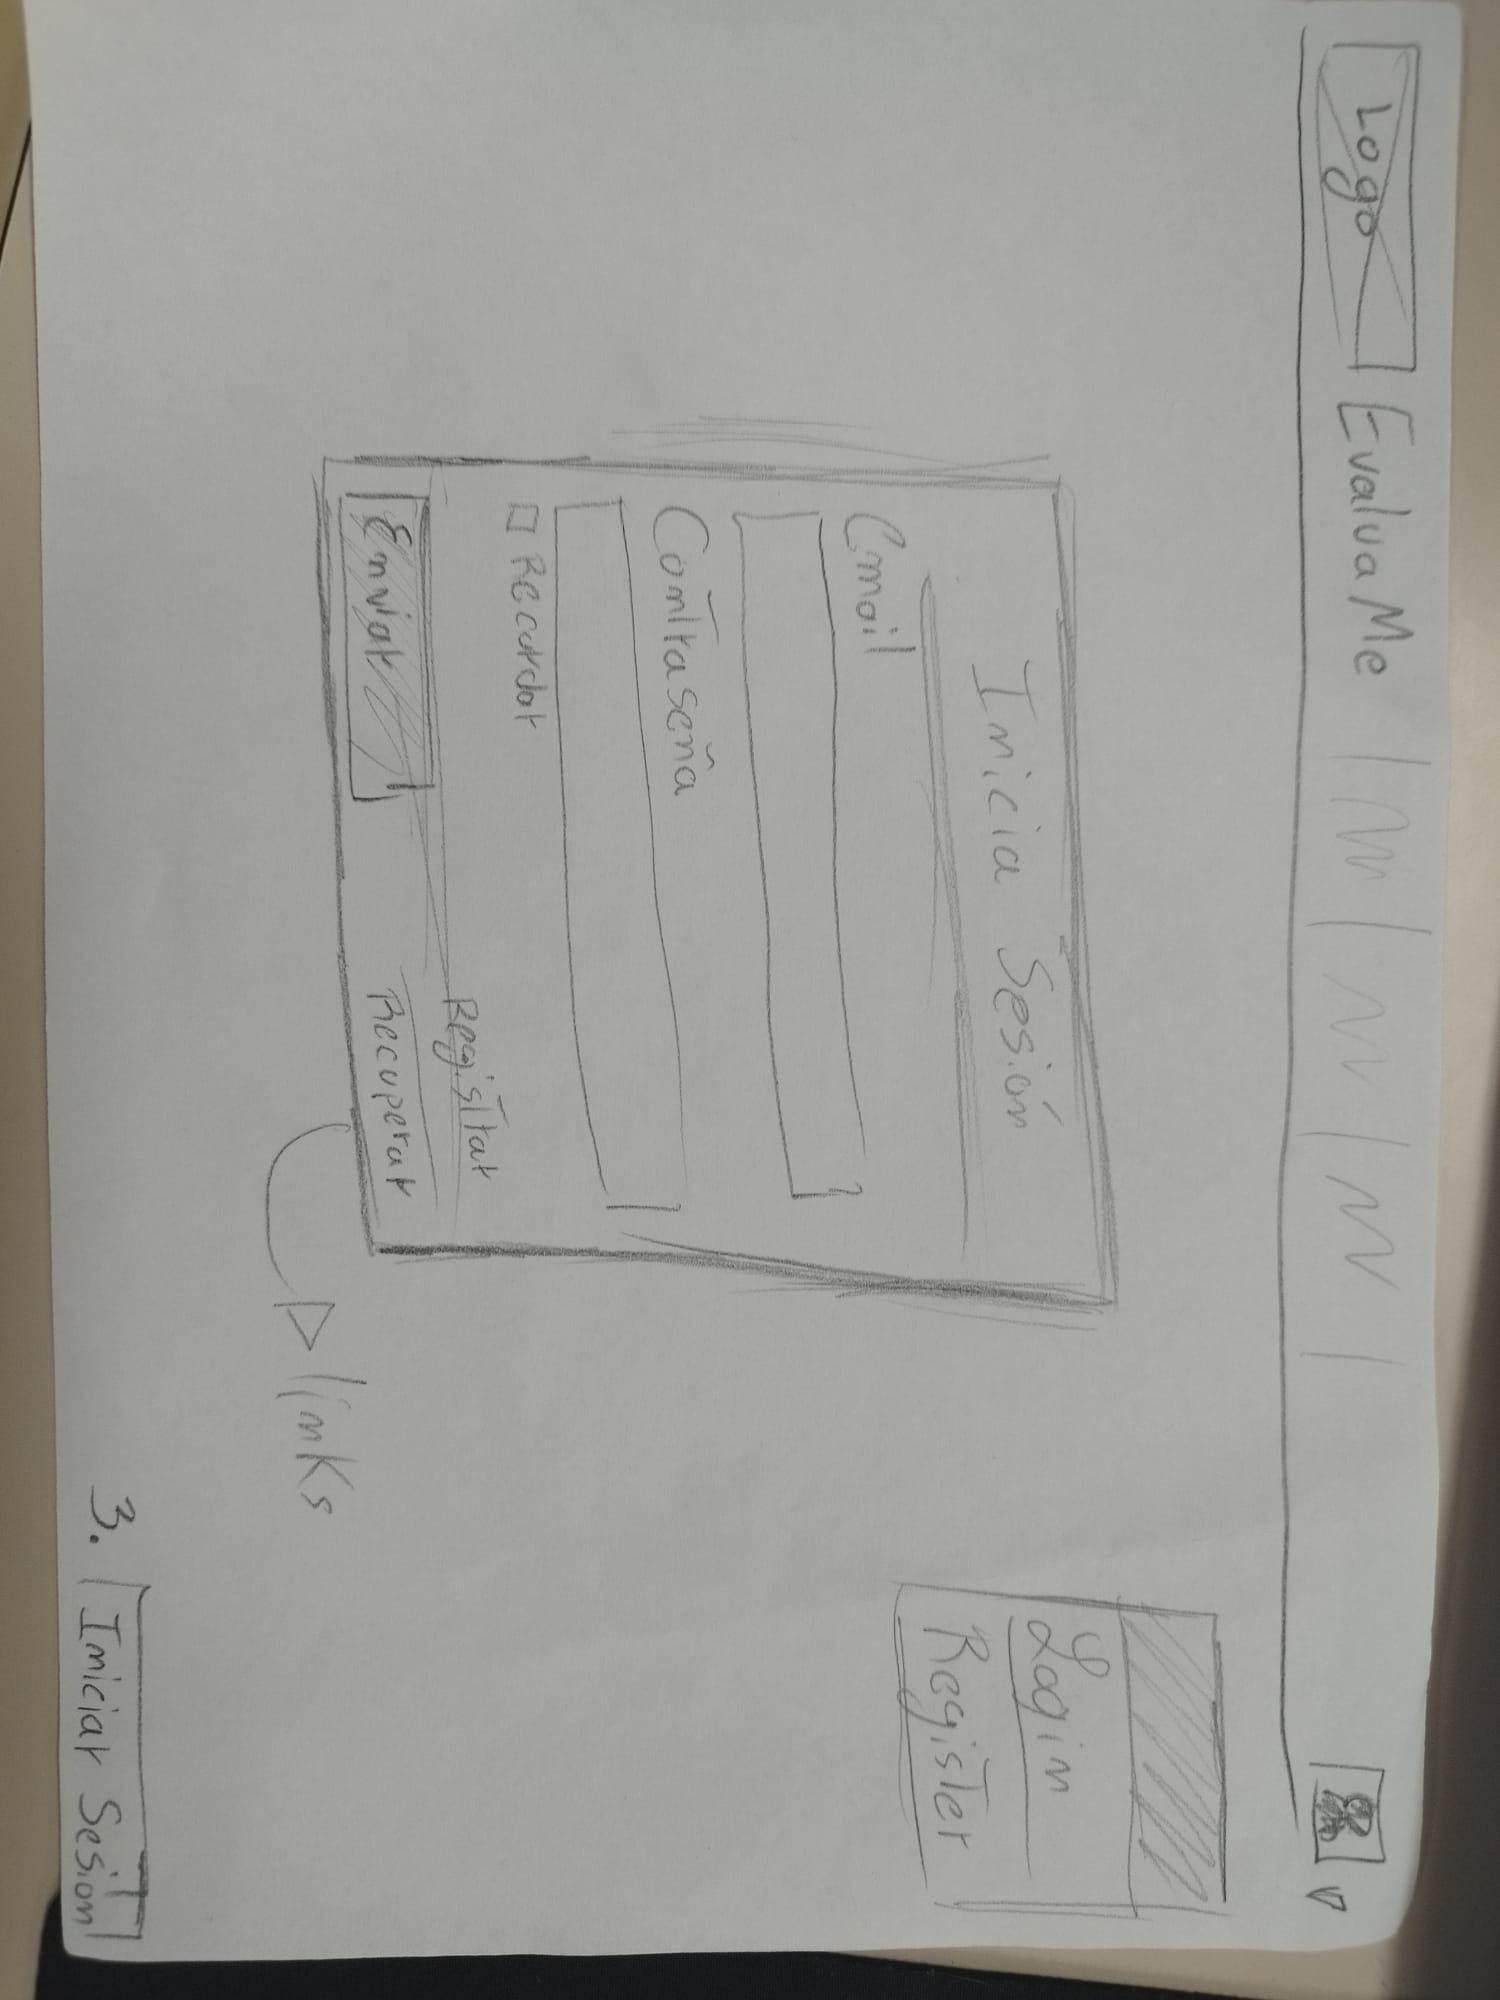 Logo EvaluaMe
Login
Register
Inicia Sesión
Email
Contraseña
Recordar
Registrar
Enviar
Recuperar
links
3. Iniciar Sesión